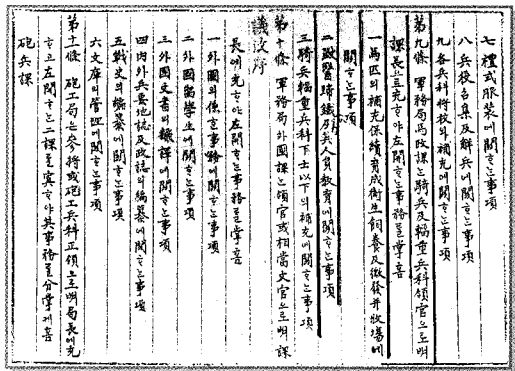 七 禮式服裝에關ᄒᆞᄂᆞᆫ事項
八 兵役召集及解兵에關ᄒᆞᄂᆞᆫ事項
九 各兵科將校의補充에關ᄒᆞᄂᆞᆫ事項
第九條 軍務局馬政課ᄂᆞᆫ騎兵及輜重兵科領官으로明
課長을充ᄒᆞ야左開ᄒᆞᄂᆞᆫ事務를掌홈
一 馬匹의補充保續育成衛生飼養及徵發幷牧場에
關ᄒᆞᄂᆞᆫ事項
二 獸醫蹄鐵工兵人員敎育에關ᄒᆞᄂᆞᆫ事項
三 騎兵輜重兵科下士以下의補充에關ᄒᆞᄂᆞᆫ事項
第十條 軍務局外國課ᄂᆞᆫ領官或相當文官으로明課
議政府
長에充ᄒᆞ야左開ᄒᆞᄂᆞᆫ事務를掌홈
一 外國의係ᄒᆞᆫ事務에關ᄒᆞᄂᆞᆫ事項
二 外國留學生에關ᄒᆞᄂᆞᆫ事項
三 外國文書의飜譯에關ᄒᆞᄂᆞᆫ事項
四 內外兵要地誌及政誌의編纂에關ᄒᆞᄂᆞᆫ事項
五 戰史의編纂에關ᄒᆞᄂᆞᆫ事項
六 文庫의管理에關ᄒᆞᄂᆞᆫ事項
第十一條 砲工局은參將或砲工兵科正領으로明局長에充
ᄒᆞ고左開ᄒᆞᄂᆞᆫ二課를寘ᄒᆞ야其事務를分掌케홈
砲兵課